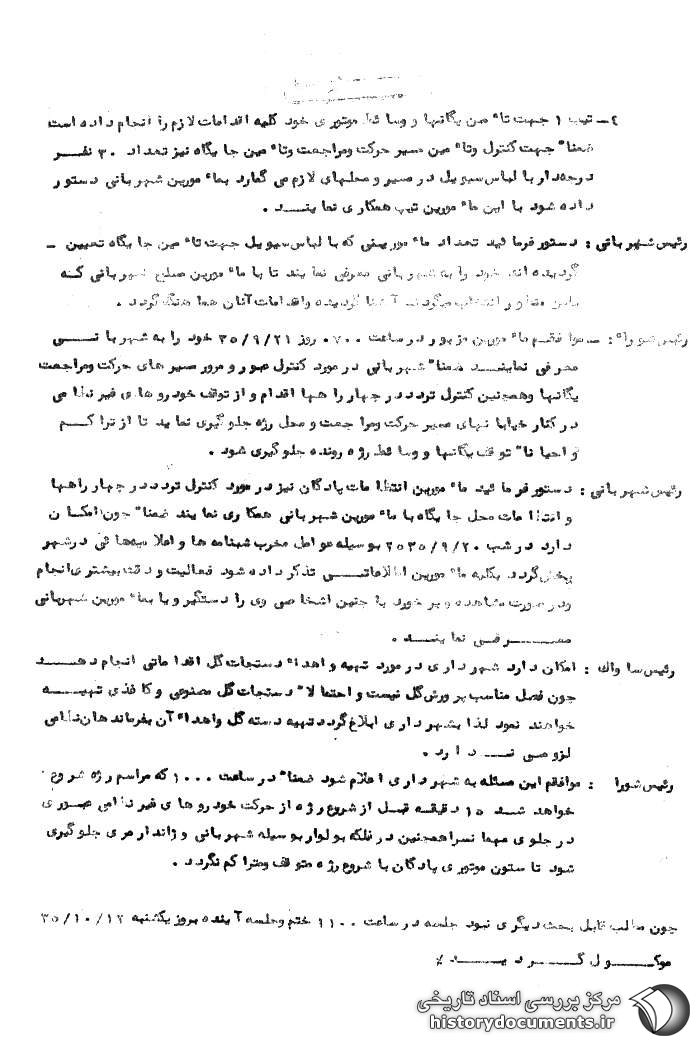 ۲ـ تیپ ۱ جهت تاٴمین یگانها و وسائط موتوری خود کلیه اقدامات لازم را انجام داده است
ضمنا" جهت کنترل وتاٴمین مسیر حرکت ومراجعت وتاٴمین جایگاه نیز تعداد ۳۰ نفـــر
درجه‌دار با لباس سیویل در مسیر و محلهای لازم می گمارد بماٴمورین شهربانی دستور
داده شود با این ماٴمورین تیپ همکاری نماینـــد .
رئیس شهربانی : دستور فرمائید تعداد ماٴمورینی که با لباس سیویل جهت تاٴمین جایگاه تعیین ـ
گردیده اند خود را به شهربانی معرفی نمایند تا با ماٴمورین مسلح شهربانی کـــه
منظور انتخاب میگردند آشنا گردیده واقدامات آنان هماهنگ گردد .
رئیس شوراٴ : ـ موافقم ماٴمورین مزبور در ساعت ۰۷۰۰ روز ۳۵/۹/۲۱ خود را به شهربانـــی
معرفی نماینـــد ضمنا" شهربانی در مورد کنترل عبور و مرور مسیر های حرکت ومراجعت
یگانها وهمچنین کنترل تردد در چهار راهها اقدام و از توقف خودرو های غیر نظامی
در کنار خیابانهای مسیر حرکت ومراجعت و محل رژه جلوگیری نماید تا از تراکـــم
و احیانا" توقف یگانها و وسائط رژه رونده جلوگیری شود .
رئیس شهربانی : دستور فرمائید ماٴمورین انتظامات پادگان نیز در مورد کنترل تردد در چهار راهها
و انتظامات محل جایگاه با ماٴمورین شهربانی همکاری نمایند ضمنا" چون امکـــان
دارد در شب ۲۵۳۵/۹/۲۰ بوسیله عوامل مخرب شبنامه ها و اعلامیه‌هائی در شهر
پخش گردد بکلیه ماٴمورین اطلاعاتـــی تذکر داده شود فعالیت و دقت بیشتری انجام
ودر صورت مشاهده و برخورد با چنین اشخاصی وی را دستگیر و یا بماٴمورین شهربانی
معـــرفی نماینـــد .
رئیس ساواك : امکان دارد شهرداری در مورد تهیه و اهداٴ دستجات گل اقداماتی انجام دهـــد
چون فصل مناسب پرورش گل نیست و احتمالا" دستجات گل مصنوعی و کاغذی تهیـــه
خواهند نمود لذا بشهرداری ابلاغ گردد تهیه دسته گل واهداٴ آن بفرماندهان نظامی
لزومی نـــدارد .
رئیس شورا : موافقم این مسئله به شهرداری اعلام شود ضمنا" در ساعت ۱۰۰۰ که مراسم رژه شروع
خواهد شـــد ۱۵ دقیقه قبل از شروع رژه از حرکت خودرو های غیر نظامی عبوری
در جلوی مهمانسرا همچنین در فلکه بولوار بوسیله شهربانی و ژاندارمری جلوگیری
شود تا ستون موتوری پادگان با شروع رژه متوقف ومتراکم نگردد .
چون مطالب قابل بحث دیگری نبود جلسه در ساعت ۱۱۰۰ ختم وجلسه آینده بروز یکشنبه ۳۵/۱۰/۱۲
موکـــول گـــردیـــد ٪
مرکز بررسی اسناد تاریخی
historydocuments.ir